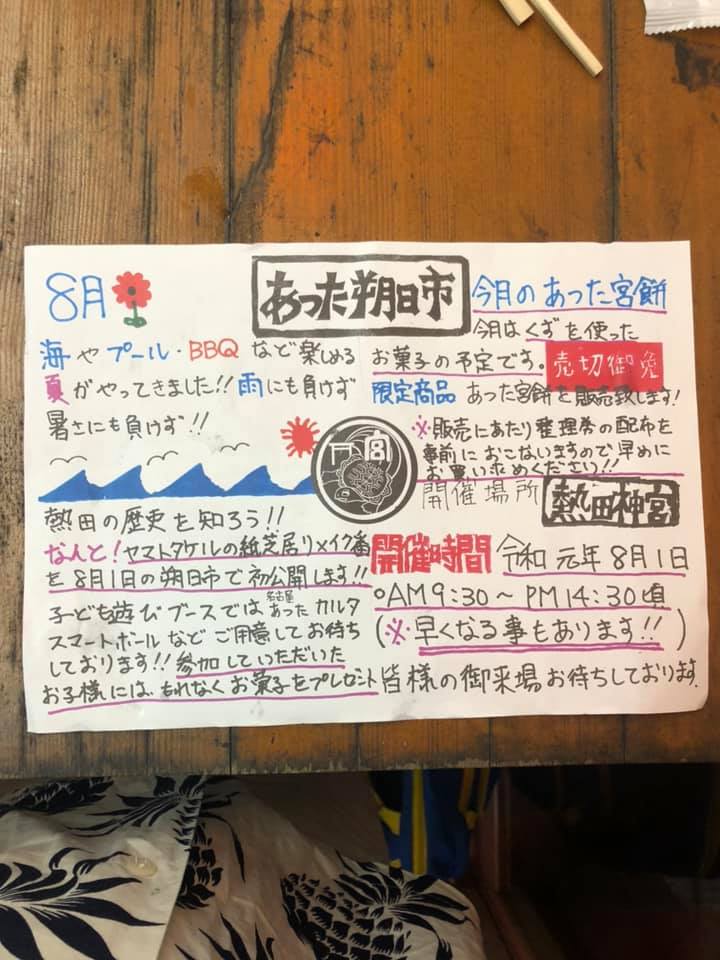 8月
あった朔日市
海やプール・BBQなど楽しめる
夏がやってきました!!雨にも負けず
暑さにも負けず!!
熱田の歴史を知ろう!!
なんと!ヤマトタケルの紙芝居リメイク番
を8月1日の朔日市で初公開します!!
子ども遊びブースでは名古屋あったカルタ
スマートボールなどご用意してお待ち
しております!!参加していただいた
お子様には、もれなくお菓子をプレゼント
今月のあった宮餅
今月はくずを使った
お菓子の予定です。売切御免
限定商品 あった宮餅を販売致します!
※販売にあたり整理券の配布を
事前におこないますので早めに
お買い求めください!!
宮
開催場所 熱田神宮
開催時間 令和元年8月1日
○AM9:30～PM14:30頃
(※早くなる事もあります!!)
皆様の御来場お待ちしております。